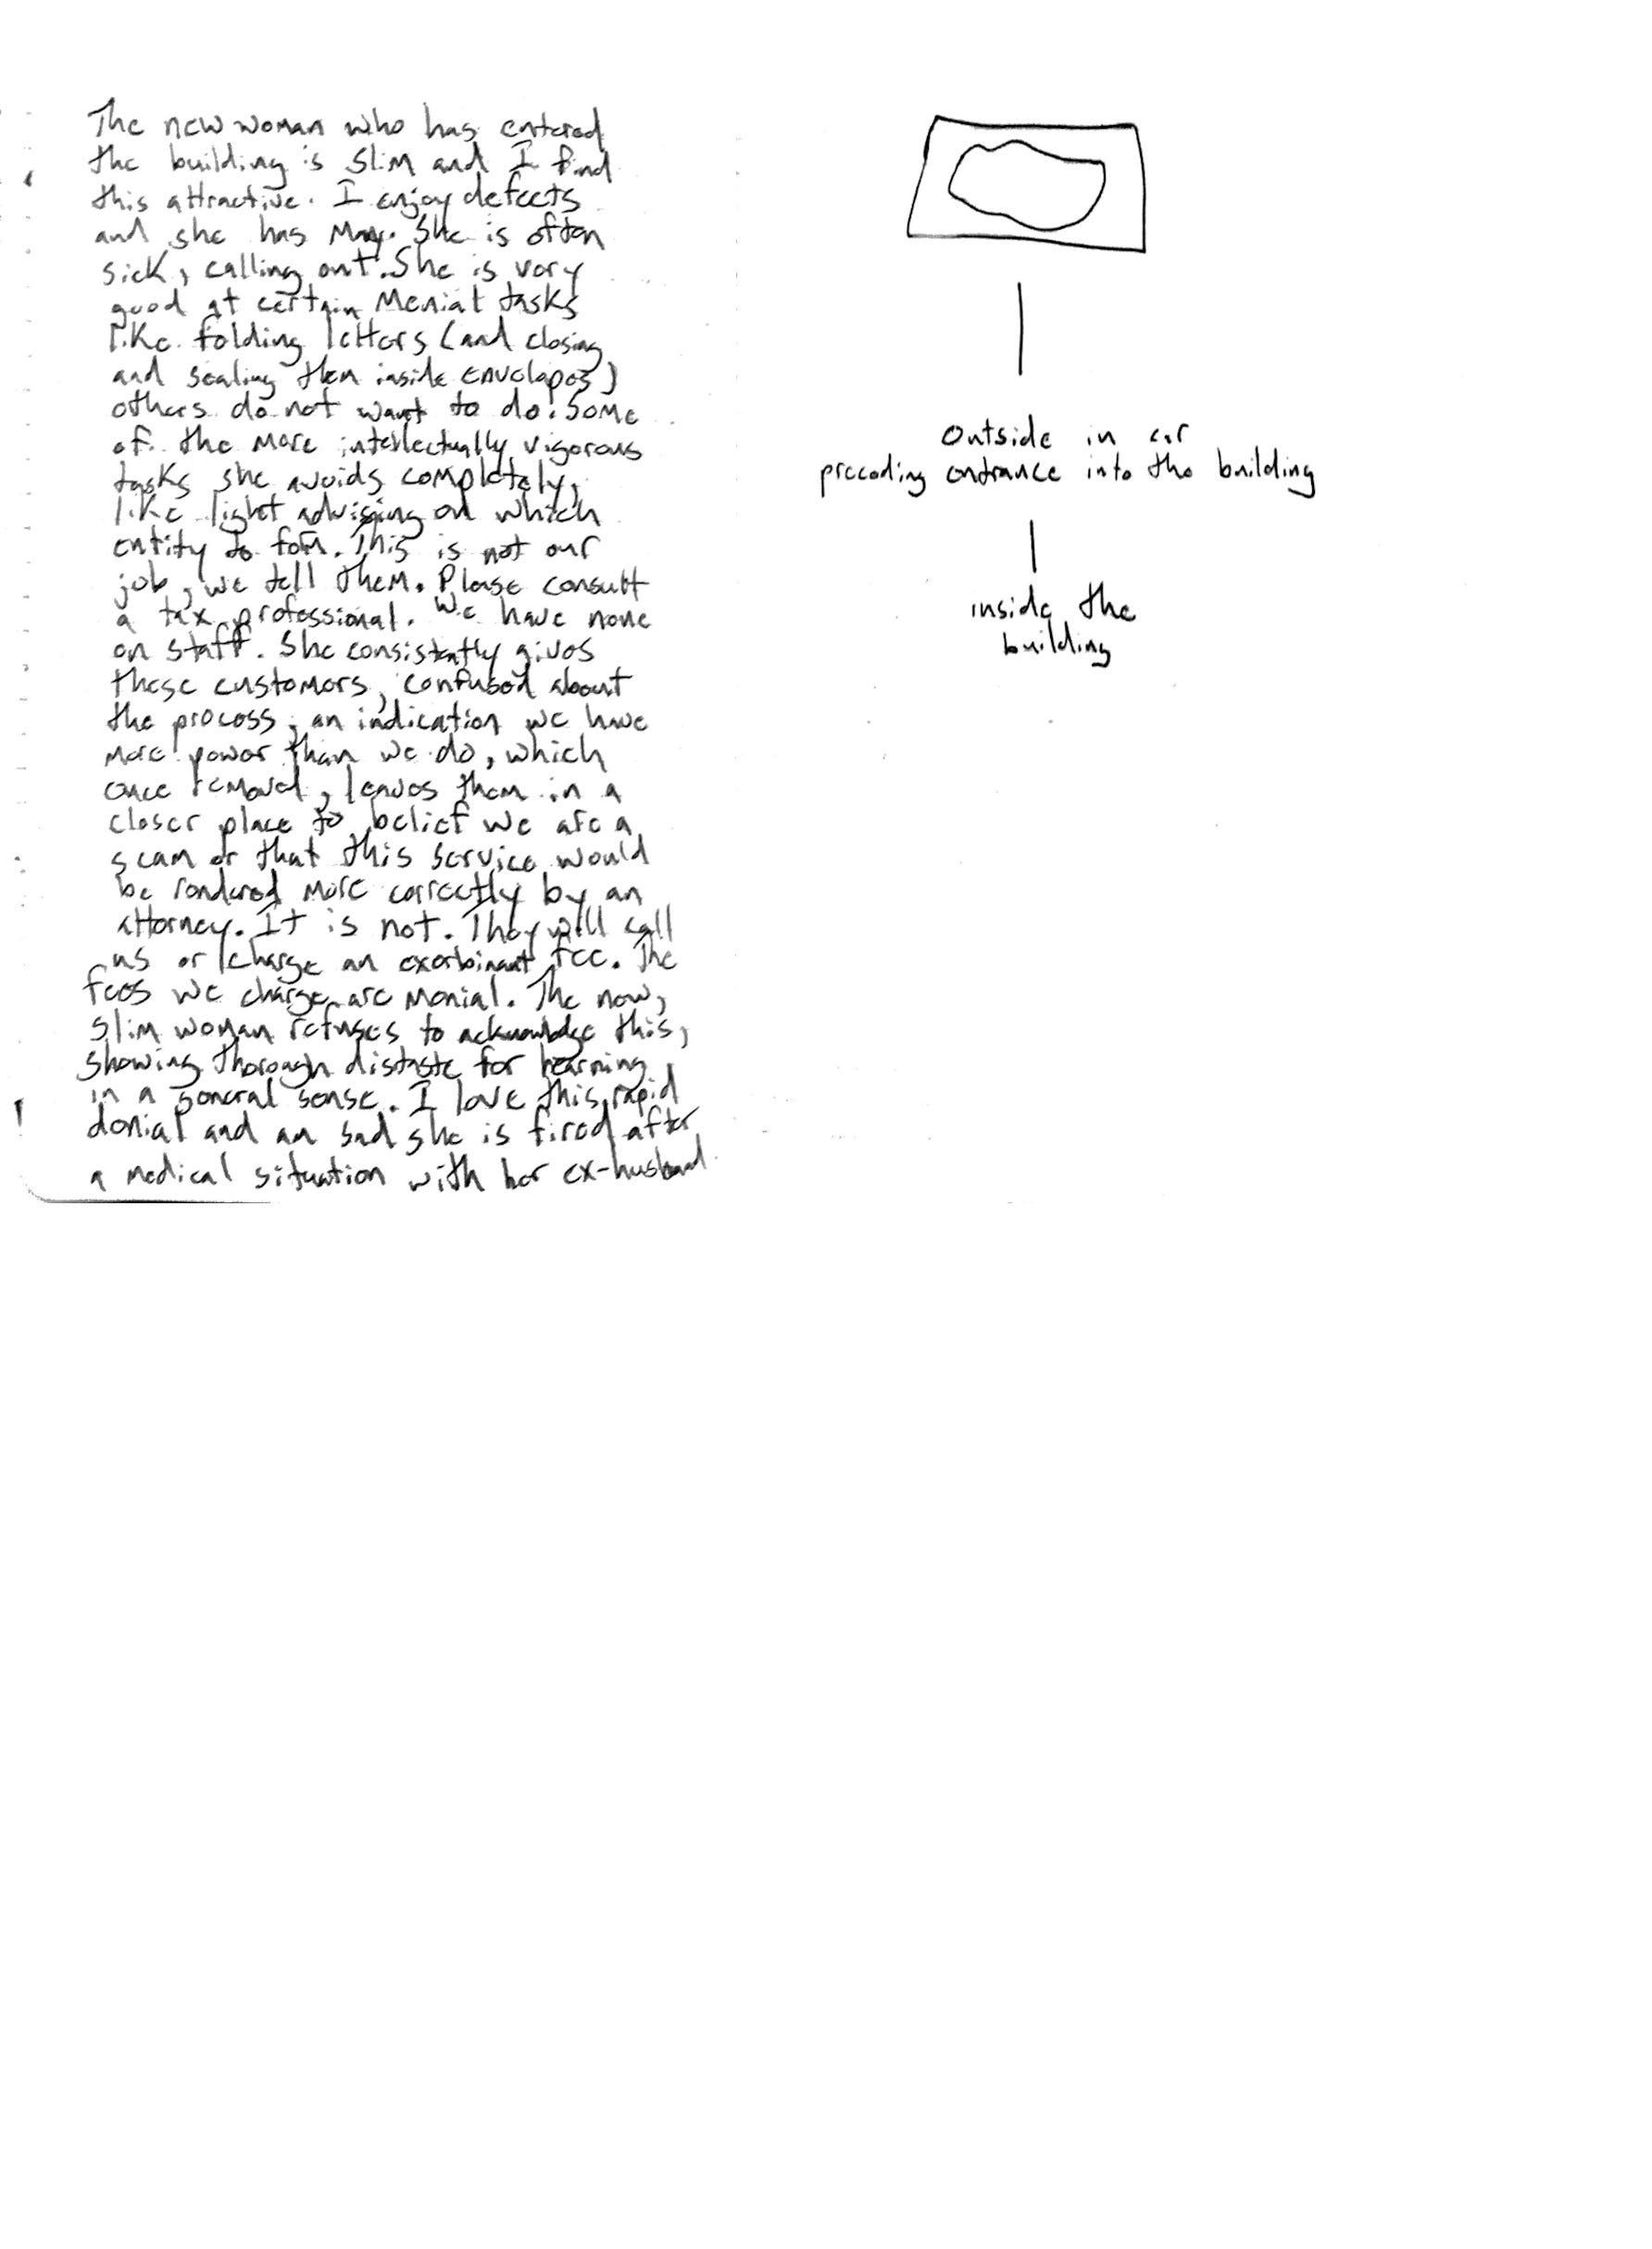 The new woman who has entered
the building is slim and I find
this attractive. I enjoy defects
and she has many. She is often
sick, calling out. She is very
good at certain menial tasks
like folding letters (and closing
and sealing them inside envelopes)
others do not want to do. Some
of the more intellectually vigorous
tasks she avoids completely,
like light advising on which
entity to form. This is not our
job, we tell them. Please consult
a tax professional. We have none
on staff. She consistently gives
these customers, confused about
the process, an indication we have
more power than we do, which
once removed, leaves them in a
closer place to belief we are a
scam or that this service would
be rendered more correctly by an
attorney. It is not. They will call
us or charge an exorbinant fee. The
fees we charge are menial. The new,
slim woman refuses to acknowledge this,
showing thorough distaste for learning
in a general sense. I love this rapid
denial and am sad she is fired after
a medical situation with her ex-husband.
Outside in car
preceding entrance into the building
inside the
building